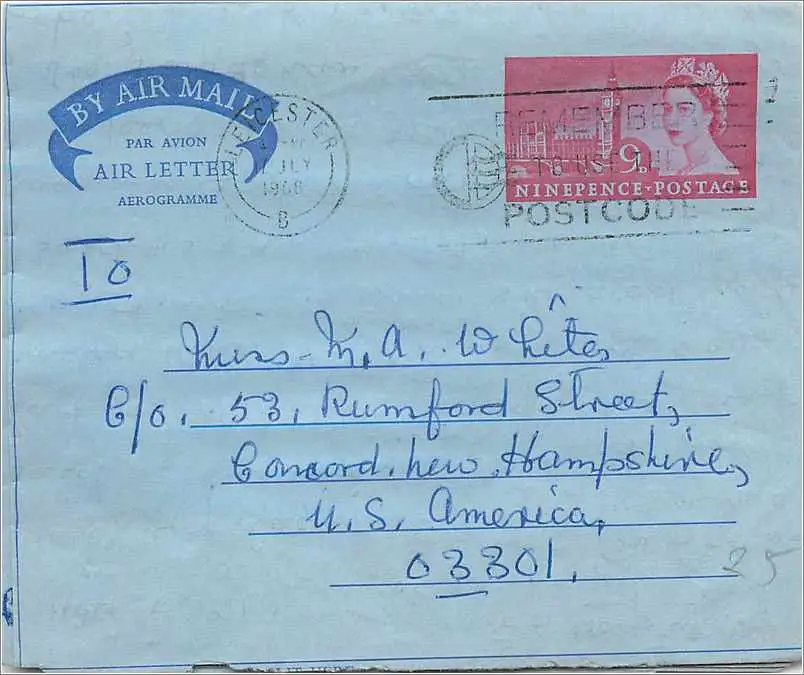 BY AIR MAIL
PAR AVION
AIR LETTER
AEROGRAMME
LEICESTER
JLY
1968
B
REMEMBER
TO USE THE
POSTCODE
9D
NINEPENCE·POSTAGE
To
Miss. M. A. White,
C/o. 53, Rumford Street,
Concord. New Hampshire,
U. S. America,
03301.
25